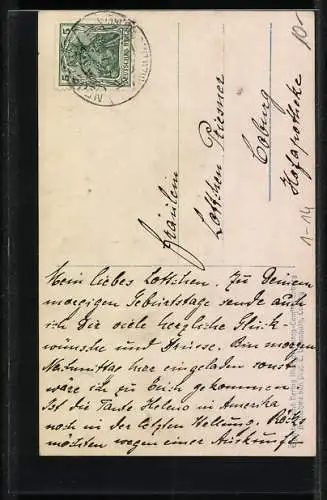 5 DEUTSCHES REICH
10.-
Fräulein
Lottchen Priesner
Coburg
Hofapotheke
1-14
Mein liebes Lottchen. Zu Deinem
morgigen Geburtstage sende auch
ich Dir viele herzliche Glück-
wünsche und Grüsse. Bin morgen
Nachmittag hier eingeladen sonst
wäre ich zu Euch gekommen
Ist die Tante Helene in Amerika
noch in der letzten Stellung.
möchten wegen einer Auskunft